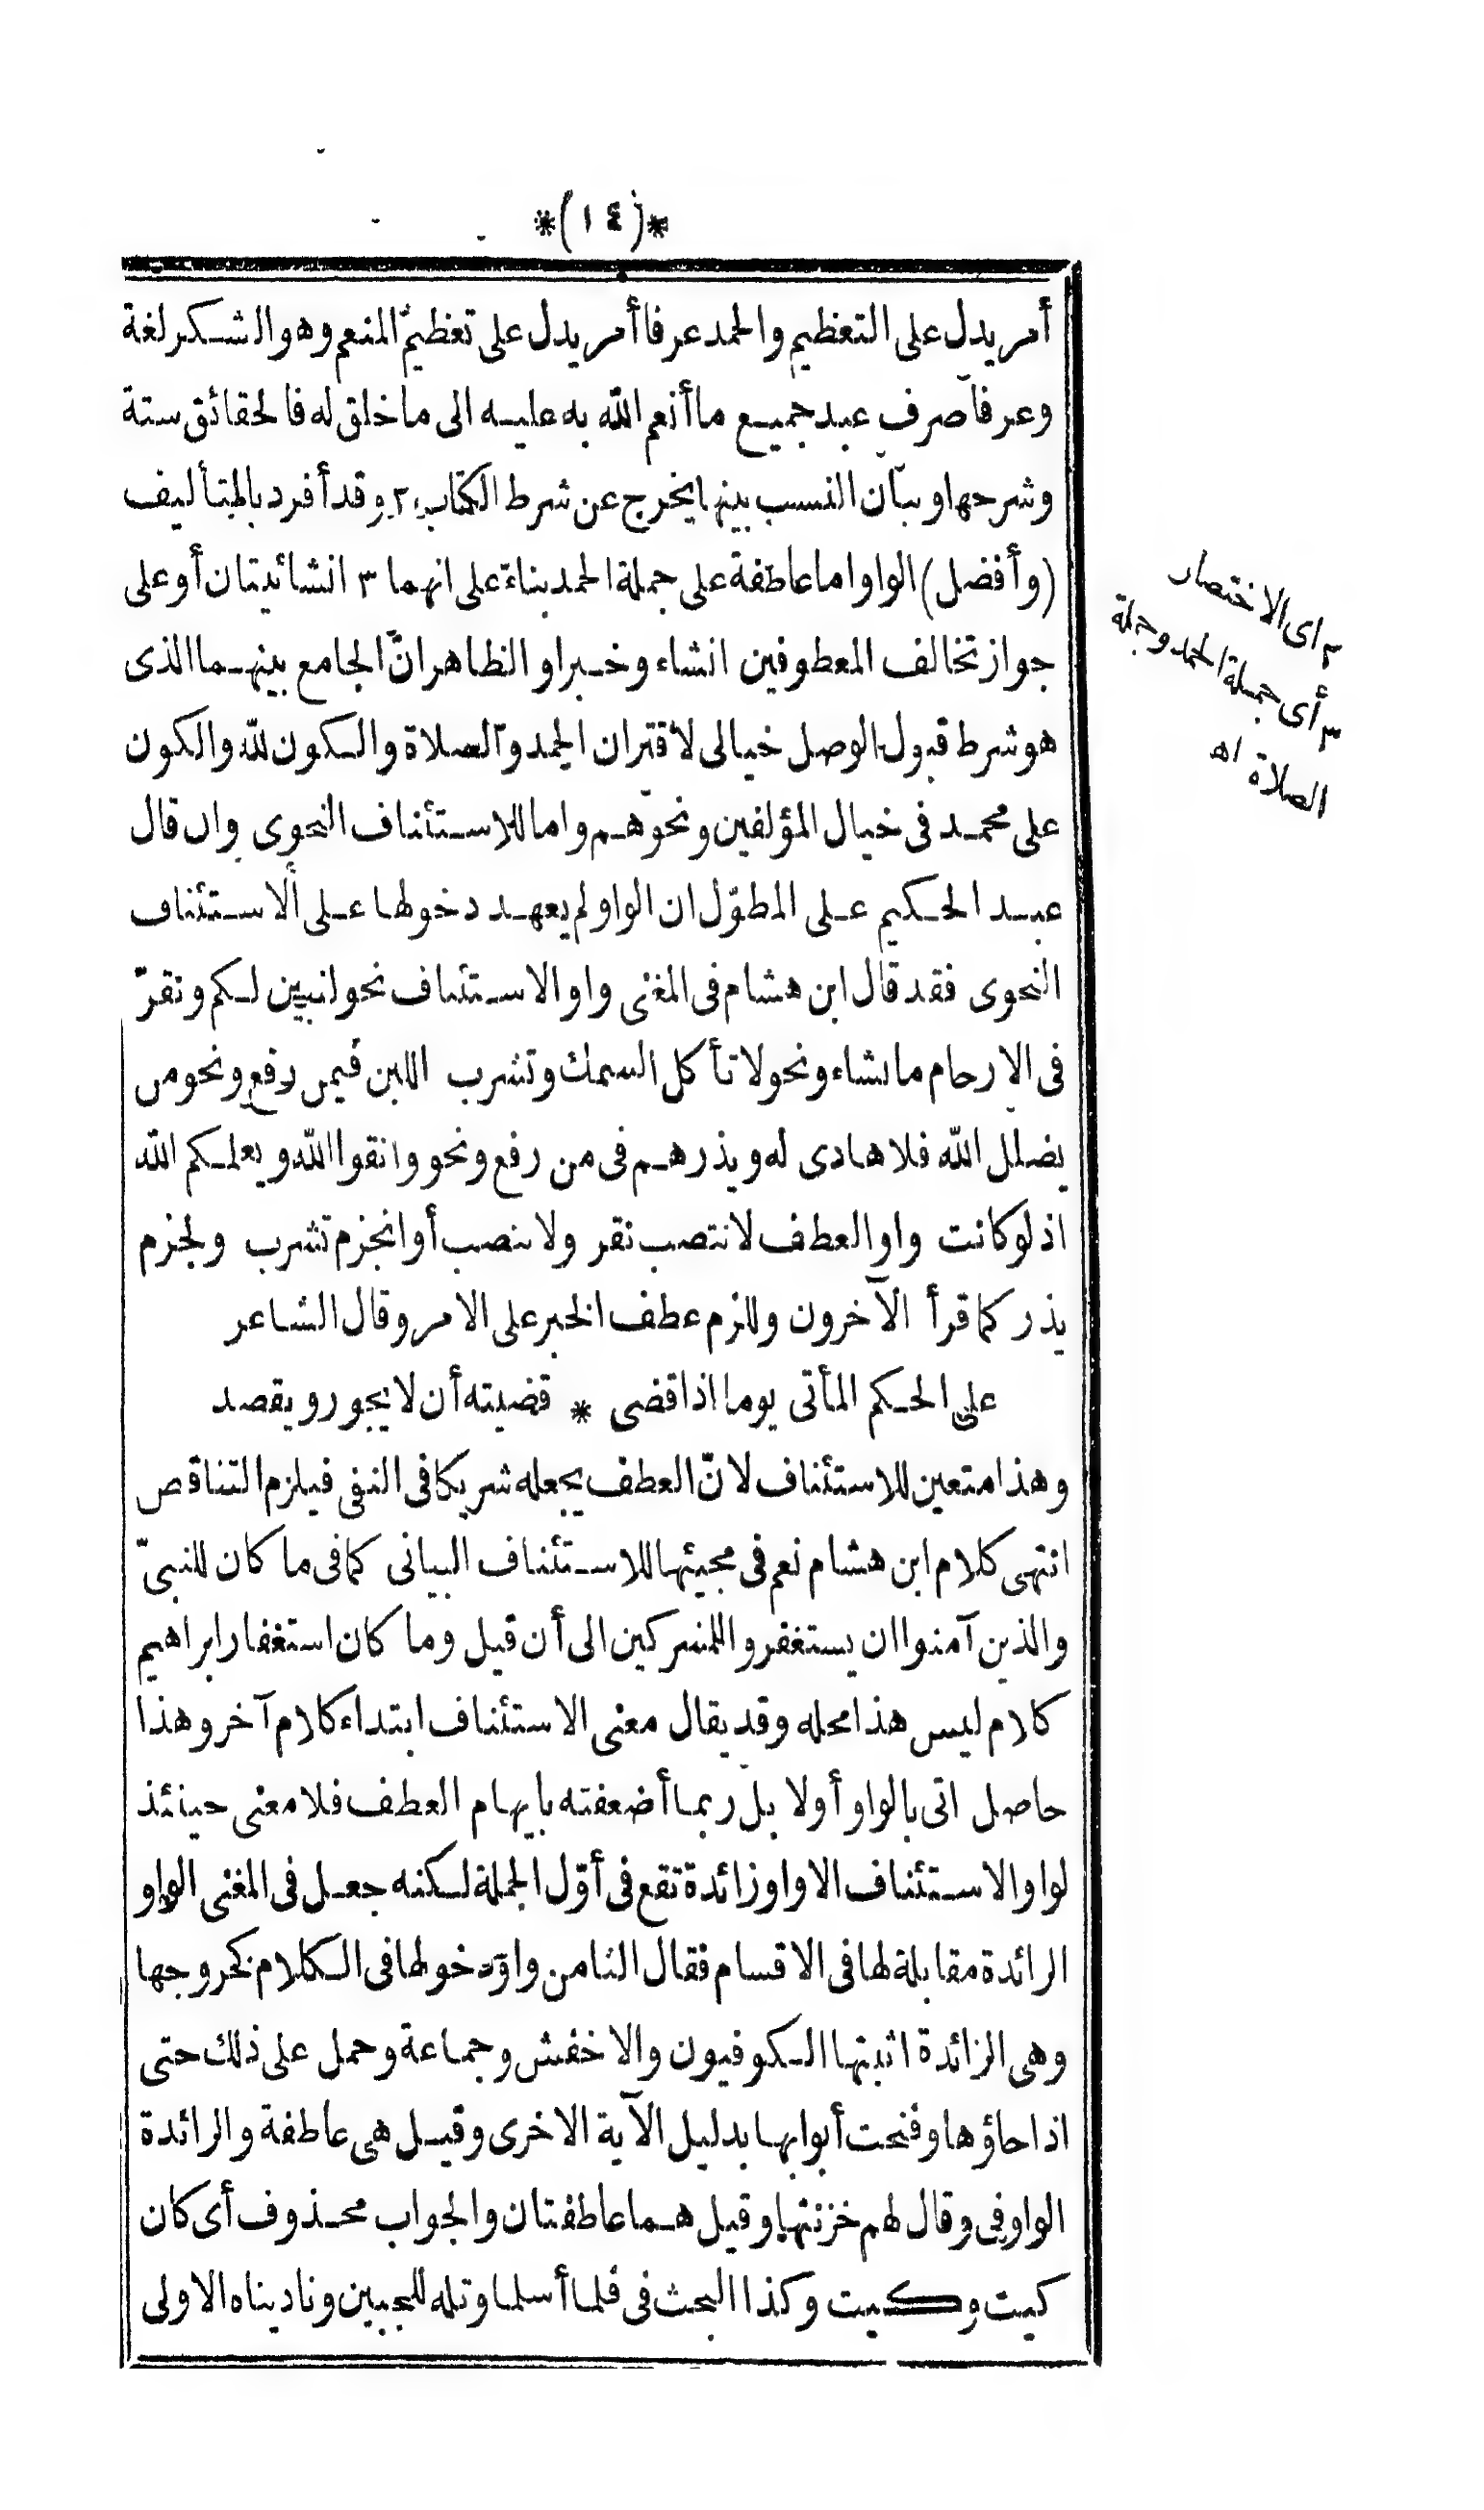 *(١٤)*
أمر يدل على التعظيم والحمد عرفا أمر يدل على تعظيم المنعم وهو الشكر لغة
وعرفا صرف عبد جميع ما أنعم الله به عليه الى ما خلق له فالحقائق ستة
وشرحها وبيان النسب بينها يخرج عن شرط الكتاب ٢ وقد أفردبالتأليف
(وأفضل) الواو اما عاطفة على جملة الحمد بناء على انهما ٣ انشائيتان أو على
جواز تخالف المعطوفين انشاء وخبرا والظاهر انّ الجامع بينهما الذى
هو شرط قبول الوصل خيالى لاقتران الحمد والصلاة والكون لله والكون
على محمد فى خيال المؤلفين ونحوهم واما للاستئناف النحوى وان قال
عبد الحكيم على المطوّل ان الواو لم يعهد دخولها على الاستئناف
النحوى فقد قال ابن هشام فى المغنى واو الاستئناف نحو لنبين لكم ونقرّ
فى الارحام ما نشاء ونحو لا تأكل السمك وتشرب اللبن فيمن رفع ونحو من
يضلل الله فلا هادى له ويذرهم فى من رفع ونحو واتقوا الله ويعلمكم الله
اذ لو كانت واو العطف لانتصب نقر ولا نتصب أو انجزم تشرب ولجزم
يذر كما قرأ الآخرون وللزم عطف الخبر على الامر وقال الشاعر
على الحكم المأتى يوما اذا قضى * قضيته أن لا يجور ويقصد
وهذا متعين للاستئناف لانّ العطف يجعله شريكا فى النفى فيلزم التناقض
انتهى كلام ابن هشام نعم فى مجيئها للاستئناف البيانى كما فى ما كان للنبىّ
والذين آمنوا ان يستغفروا للمشركين الى أن قيل وما كان استغفار ابراهيم
كلام ليس هذا محله وقد يقال معنى الاستئناف ابتداء كلام آخر وهذا
حاصل اتى بالواو أولا بل ربما أضعفته بايهام العطف فلا معنى حينئذ
لواو الاستئناف الا واو زائدة تقع فى أوّل الجملة لكنه جعل فى المغنى الواو
الزائدة مقابلة لها فى الاقسام فقال الثامن واو دخولها فى الكلام كخروجها
وهى الزائدة اثبتها الكوفيون والاخفش وجماعة وحمل على ذلك حتى
اذا جاؤها وفتحت أبوابها بدليل الآية الاخرى وقيل هى عاطفة والزائدة
الواو فى وقال لهم خزنتها وقيل هما عاطفتان والجواب محذوف أى كان
كيت وكيت وكذا البحث فى فلما أسلما وتله للجبين وناديناه الاولى
٢ اى الاختصار
٣ أى جملة الحمد وجملة
الصلاة اه